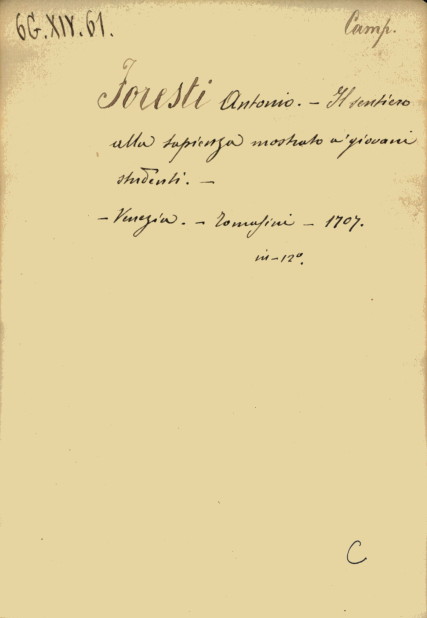 6G.XIV.61.
Camp.
Foresti Antonio. - Il sentiero
alla sapienza mostrato a' giovani
studenti. -
- Venezia. - Tomasini - 1707.
in-12º.
C